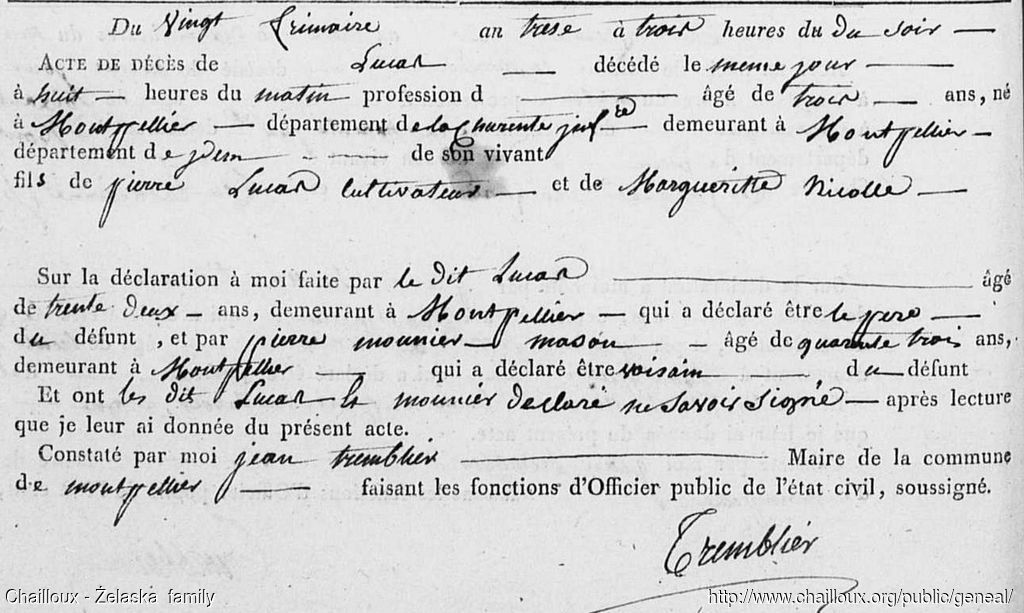 Du Vingt frimaire an trese à trois heures du du soir
ACTE DE DÉCÈS de Lucas décédé le meme jour
à huit heures du matin profession d âgé de trois ans, né
à Montpellier département de la Charente infre demeurant à Montpellier
département de ydem de son vivant
fils de pierre Lucas Cultivateur et de Margueritte Nicolle
Sur la déclaration à moi faite par le dit Lucas âgé
de trente deux ans, demeurant à Montpellier qui a déclaré être le pere
du défunt, et par pierre mounier mason âgé de quarente trois ans,
demeurant à Montpellier qui a déclaré être voisain du défunt
Et ont les dit Lucas et mounier declaré ne Savoir Signé après lecture
que je leur ai donnée du présent acte.
Constaté par moi jean tremblier Maire de la commune
de montpellier faisant les fonctions d'Officier public de l'état civil, soussigné.
Tremblier
Chailloux - Żelaska family http://www.chailloux.org/public/geneal/